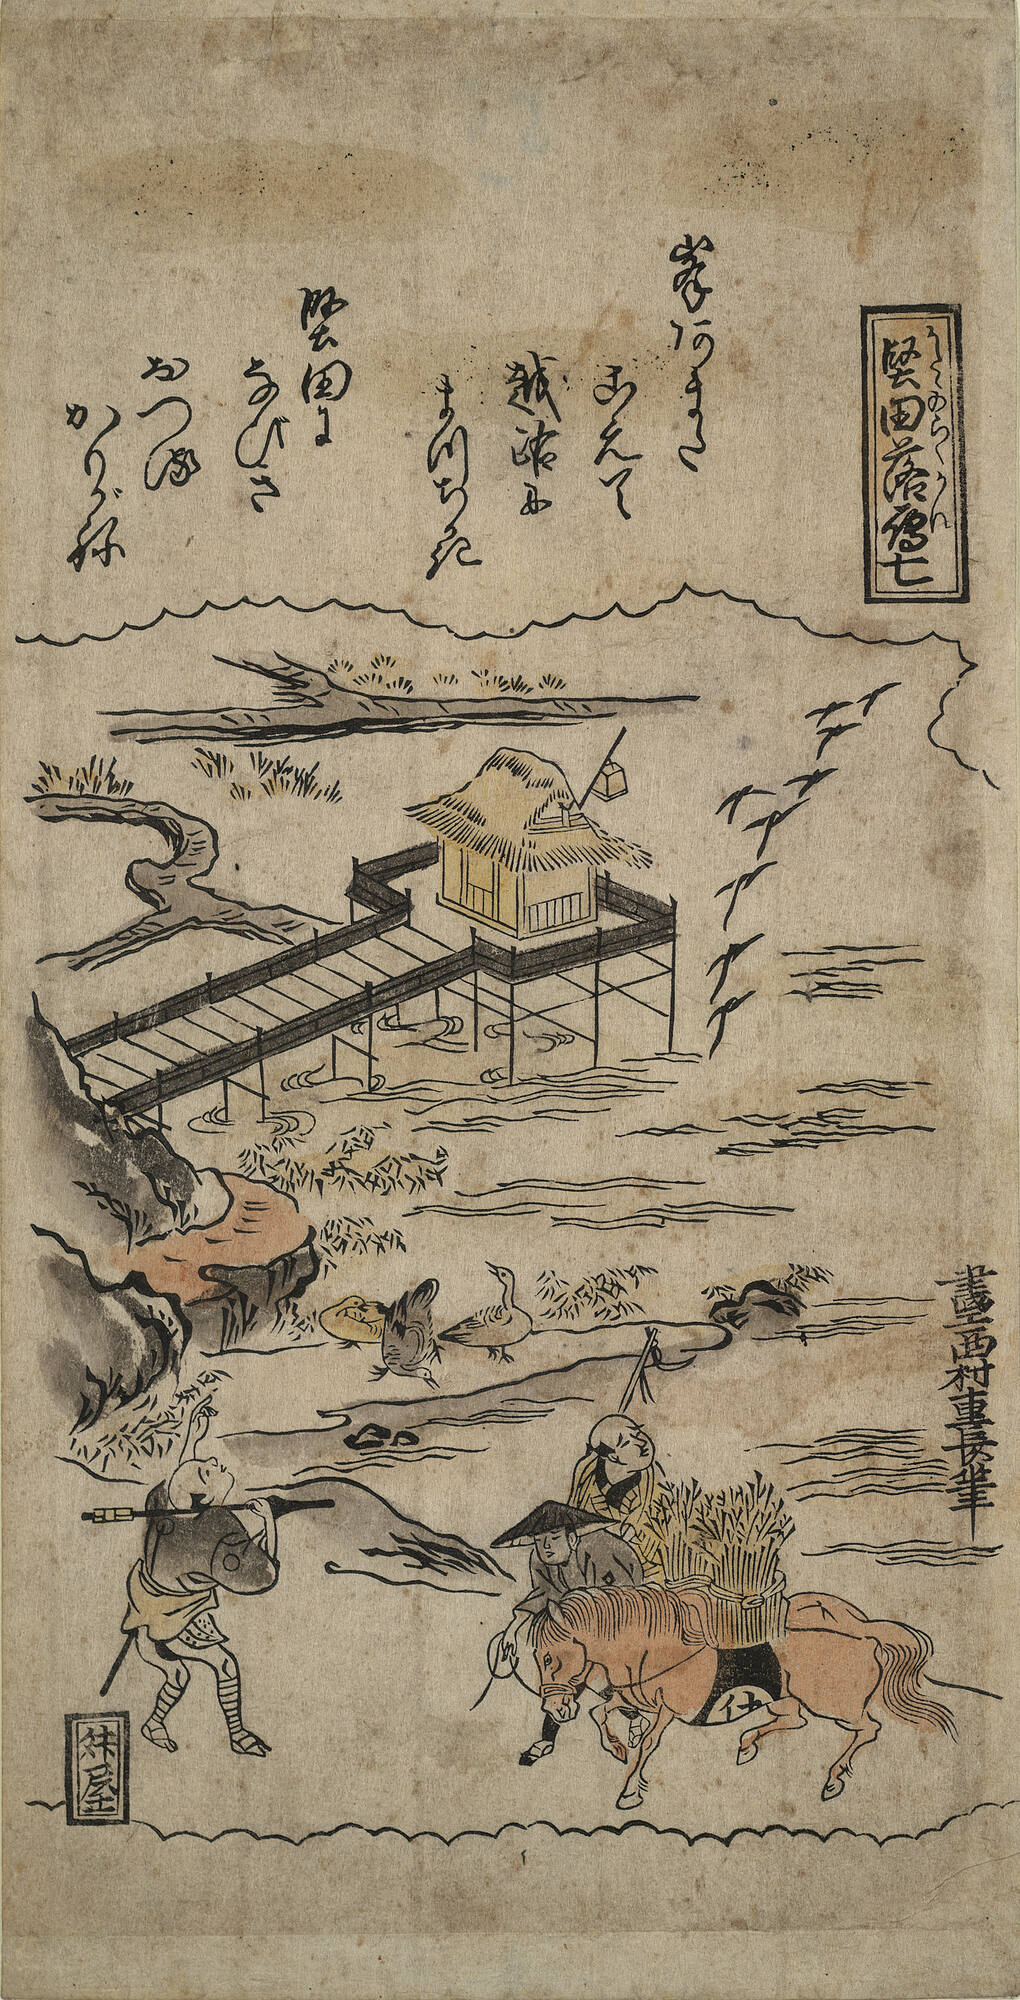 堅田落鴈 七
かたゝのらくがん
峯あまた
こえて
越路に
まづちかき
堅田に
なびき
おつる
かりがね
畫工西村重長筆
仕